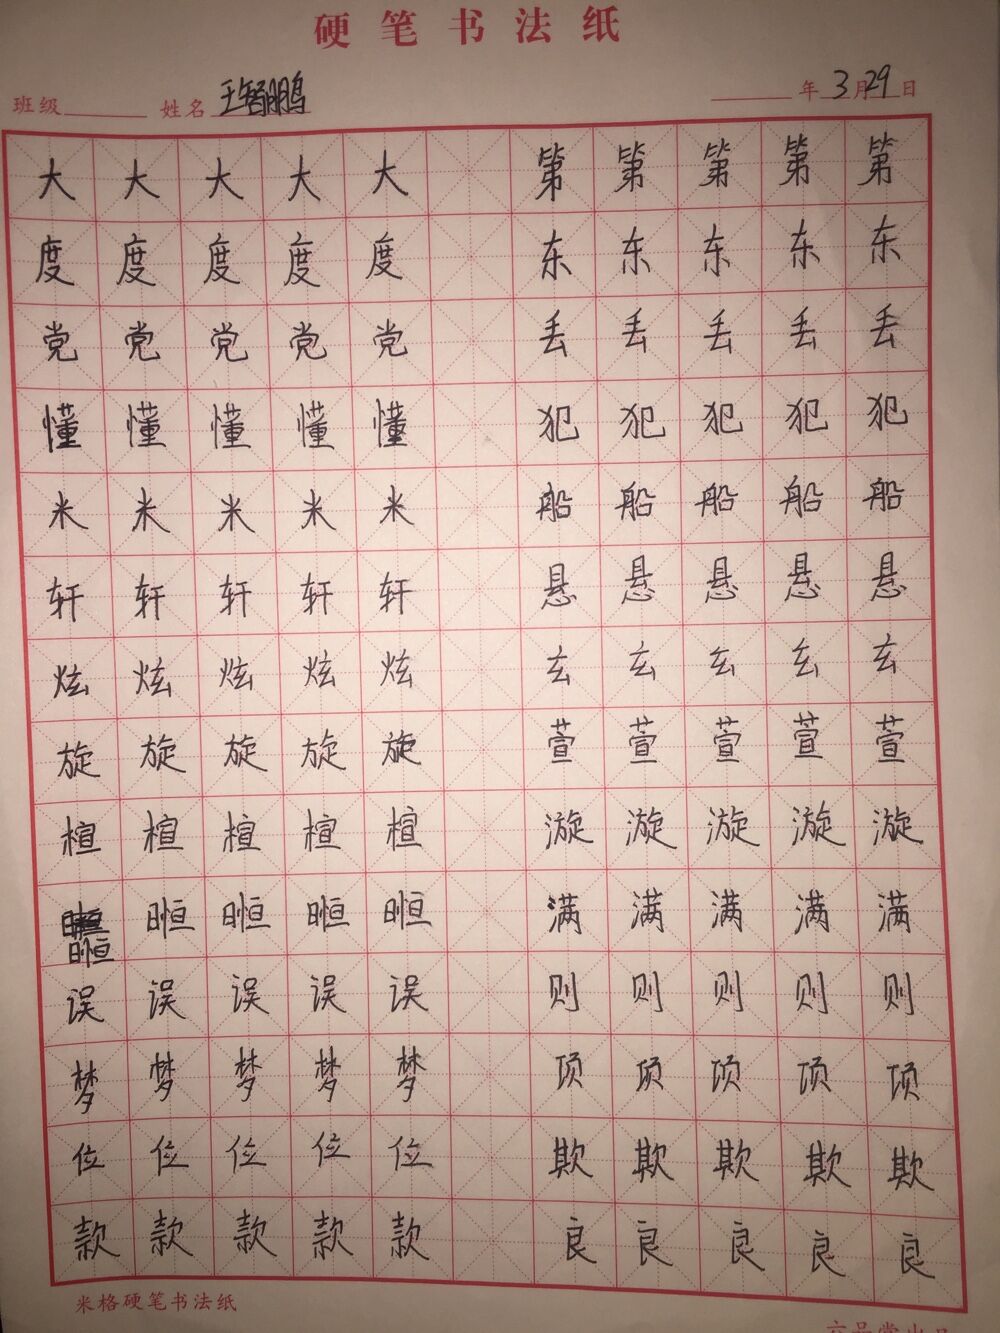 硬笔书法纸
班级 姓名 王智鹏 年 3 月 29 日
大 大 大 大 大 第 第 第 第 第
度 度 度 度 度 东 东 东 东 东
党 党 党 党 党 丢 丢 丢 丢 丢
懂 懂 懂 懂 懂 犯 犯 犯 犯 犯
米 米 米 米 米 船 船 船 船 船
轩 轩 轩 轩 轩 悬 悬 悬 悬 悬
炫 炫 炫 炫 炫 玄 玄 玄 玄 玄
旋 旋 旋 旋 旋 萱 萱 萱 萱 萱
楦 楦 楦 楦 楦 漩 漩 漩 漩 漩
满 满 满 满 满
误 误 误 误 误 则 则 则 则 则
梦 梦 梦 梦 梦 项 项 项 项 项
位 位 位 位 位 欺 欺 欺 欺 欺
款 款 款 款 款 良 良 良 良 良
米格硬笔书法纸